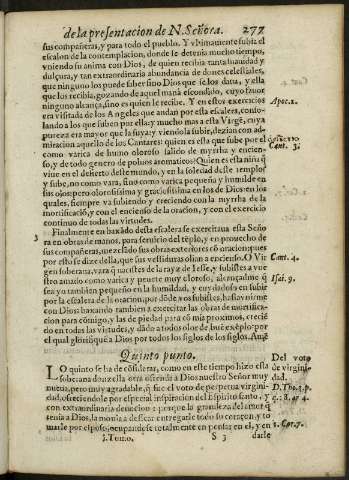 de la presentacion de N. Señora. 277
sus compañeras, y para todo el pueblo. Y vltimamente subia el
escalon de la contemplacion, donde se detenia mucho tiempo,
vniendo su anima con Dios, de quien recibia tanta suauidad y
dulçura, y tan extraordinaria abundancia de dones celestiales,
que ninguno los puede saber sino Dios que se los daua, y ella
que los recibia, gozando de aquel maná escondido, cuyo sabor
ninguno alcança, sino es quien le recibe. Y en estos exercicios Apoc. 2.
era visitada de los Angeles que andan por esta escalera, conso-
lando a los que suben por ella: y mucho mas a esta Virgẽ, cuya
pureza era mayor que la suya: y viendola subir, dezian con ad-
miracion aquello de los Cantares: quien es esta que sube por el
como varica de humo oloroso salido de myrrha y encien- Cant. 3.
so, y de todo genero de poluos aromaticos? Quien es esta niña q̃
viue en el desierto deste mundo, y en la soledad deste templo
y sube, no como vara, sino como varica pequeña y humilde en
sus ojos: pero olorosissima y graciosissima en los de Dios: en los
quales, siempre va subiendo y creciendo con la myrrha de la
mortificació, y con el encienso de la oracion, y con el exercicio
continuo de todas las virtudes.
3 Finalmente en baxãdo desta escalera se exercitaua esta Señora
en obras de manos, para seruicio del tẽplo, y en prouecho de
sus compañeras, mezclãdo sus obras exteriores cõ oracion: pues
por esto se dize della, que sus vestiduras olian a encienso. O Vir Cant. 4.
gen soberana, vara q̃ nacistes de la rayz de Iesse, y subistes a vue
stro amado como varica y perfume muy oloroso, alcançadme q̃ Isai. 9.
sea yo tambien pequeño en la humildad, y cuydadoso en subir
por la escalera de la oracion, por dõde vos subistes, hasta vnirme
con Dios: baxando tambien a exercitar las obras de mortifica-
cion para cõmigo, y las de piedad para cõ mis proximos, crecié
do en todas las virtudes, y dãdo a todos olor de buẽ exẽplo: por
el qual glorifiquẽ a Dios por todos los siglos de los siglos. Amẽ
Quinto punto. Del voto
LO quinto se ha de cõsiderar, como en este tiempo hizo esta de virgini-
soberana donzella otra ofrenda a Dios nuestro Señor muy dad.
nueua, pero muy agradable, q̃ fue el voto de perpetua virgini- D. Tho. 3. p.
dad, ofreciendole por especial inspiracion del Espiritu santo, y q. 28. ar 4.
con extraordinaria deuocion: porque la grandeza del amor q̃
tenia a Dios, la mouia a dessear entregarle todo su coraçon, y to
marle por esposo, ocupandose totalmente en pensar en el, y en 1. Cor. 7.
I. Tomo. S 3 darle